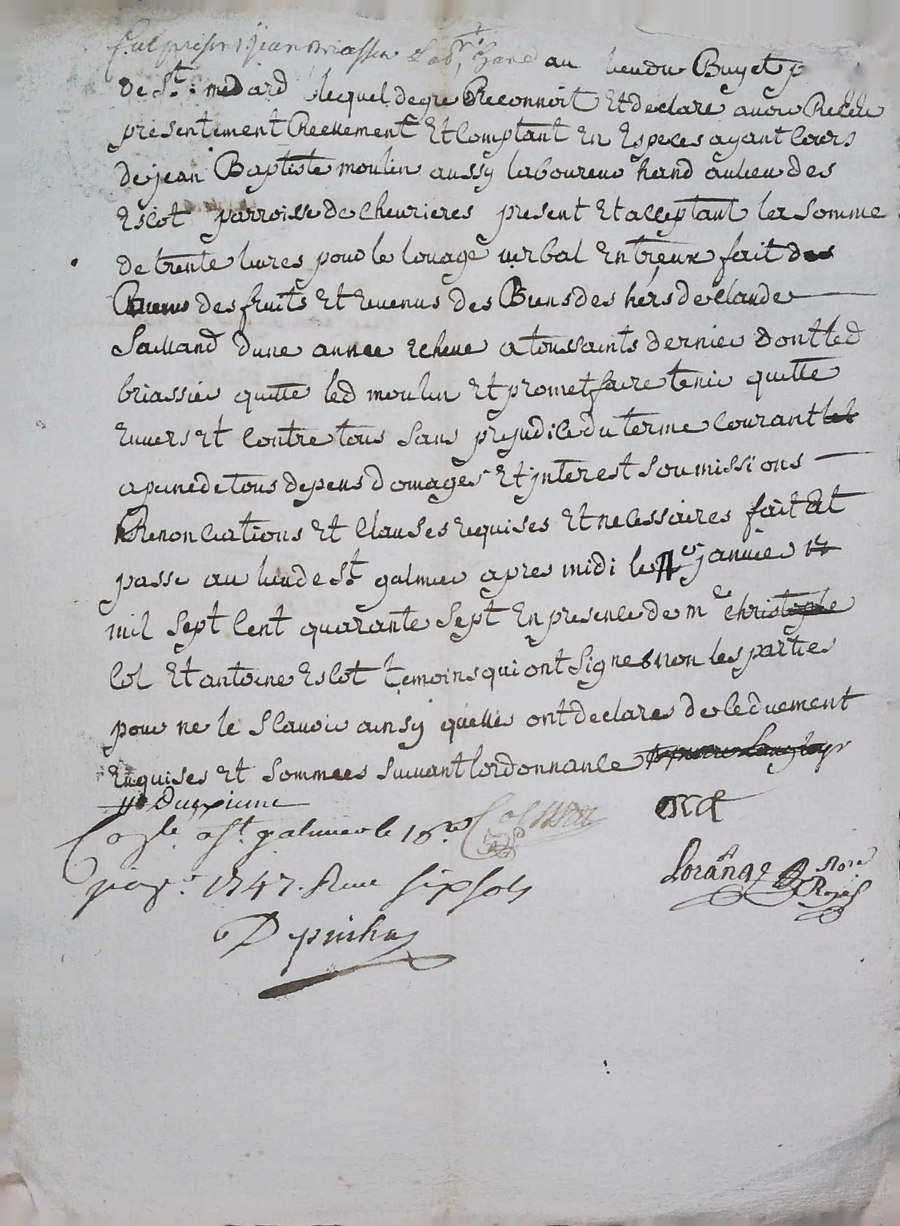 fut present jean Briassier Lab.r hand au lieu du Buyet p
de St. medard lequel de gre Reconnoit Et declare avoir Recu
presentement Reellement Et Comptant En Especes ayant Cours
de jean Baptiste moulin aussy laboureur hand au lieu des
Escot parroisse de chevrieres present Et acceptant la somme
de trente livres pour le louage verbal Entreux fait des
des fruits Et revenus des Biens des hers de claude
Salland dune annee Echeue a toussaints dernier dont led
briassier quitte led moulin Et promet faire tenir quitte
Envers Et Contre tous sans prejudice du terme Courant
a peine de tous depens domages Et jnterest soumissions
Renonciations Et Clauses requises Et necessaires fait Et
passe au lieu de St. galmier apres midi le janvier
mil sept Cent quarante sept En presence de mr christophe
Col Et antoine Escot temoins qui ont signe & non les parties
pour ne le scavoir ainsy quelles ont declare de ce duement
Enquises Et sommees suivant lordonnance
Col
Escot
Con.le a St. galmier le 16.e
janv.r 1747. Recu six sols
Lorange Nore
Royal
Depuihas